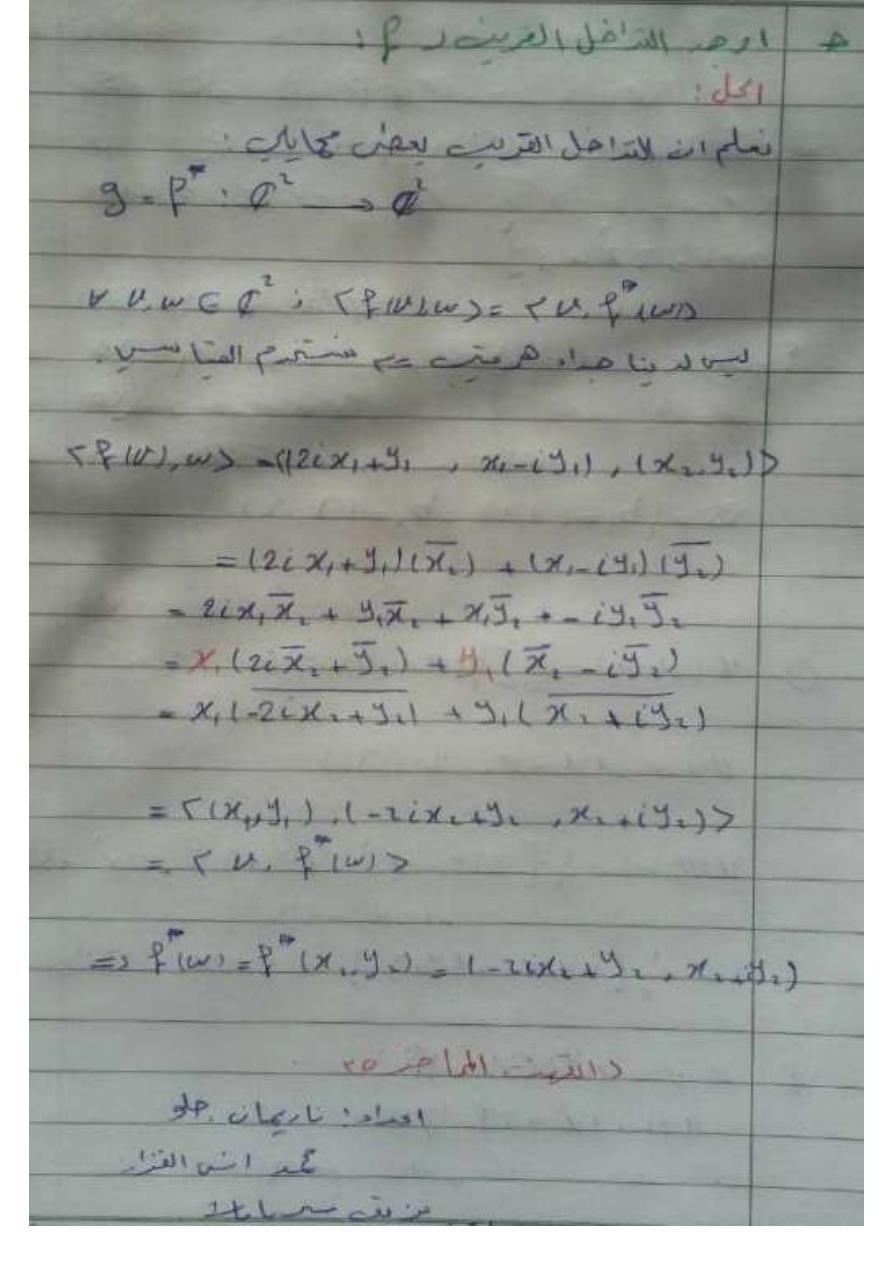 اوجد التداخل القرين لـ f :
الحل :
نعلم ان التداخل القرين يعطى كمايلي :
g = f* : ℂ² → ℂ²
∀ v, w ∈ ℂ² ; <f(v), w> = <v, f*(w)>
ليس لدينا جداء هرميتي => نستخدم القياسي .
<f(v), w> = <(2ix₁+y₁ , x₁-iy₁) , (x₂, y₂)>
= (2ix₁+y₁)(x̅₂) + (x₁-iy₁)(y̅₂)
= 2ix₁x̅₂ + y₁x̅₂ + x₁y̅₂ + -iy₁y̅₂
= x₁(2ix̅₂+y̅₂) + y₁(x̅₂-iy̅₂)
= x₁(\overline{-2ix₂+y₂}) + y₁(\overline{x₂+iy₂})
= <(x₁, y₁) , (-2ix₂+y₂ , x₂+iy₂)>
= <v, f*(w)>
=> f*(w) = f*(x₂, y₂) = (-2ix₂+y₂ , x₂+iy₂)
انتهت المحاضرة ٢٥
اعداد : ناريمان حلو
محمد انس القزاز